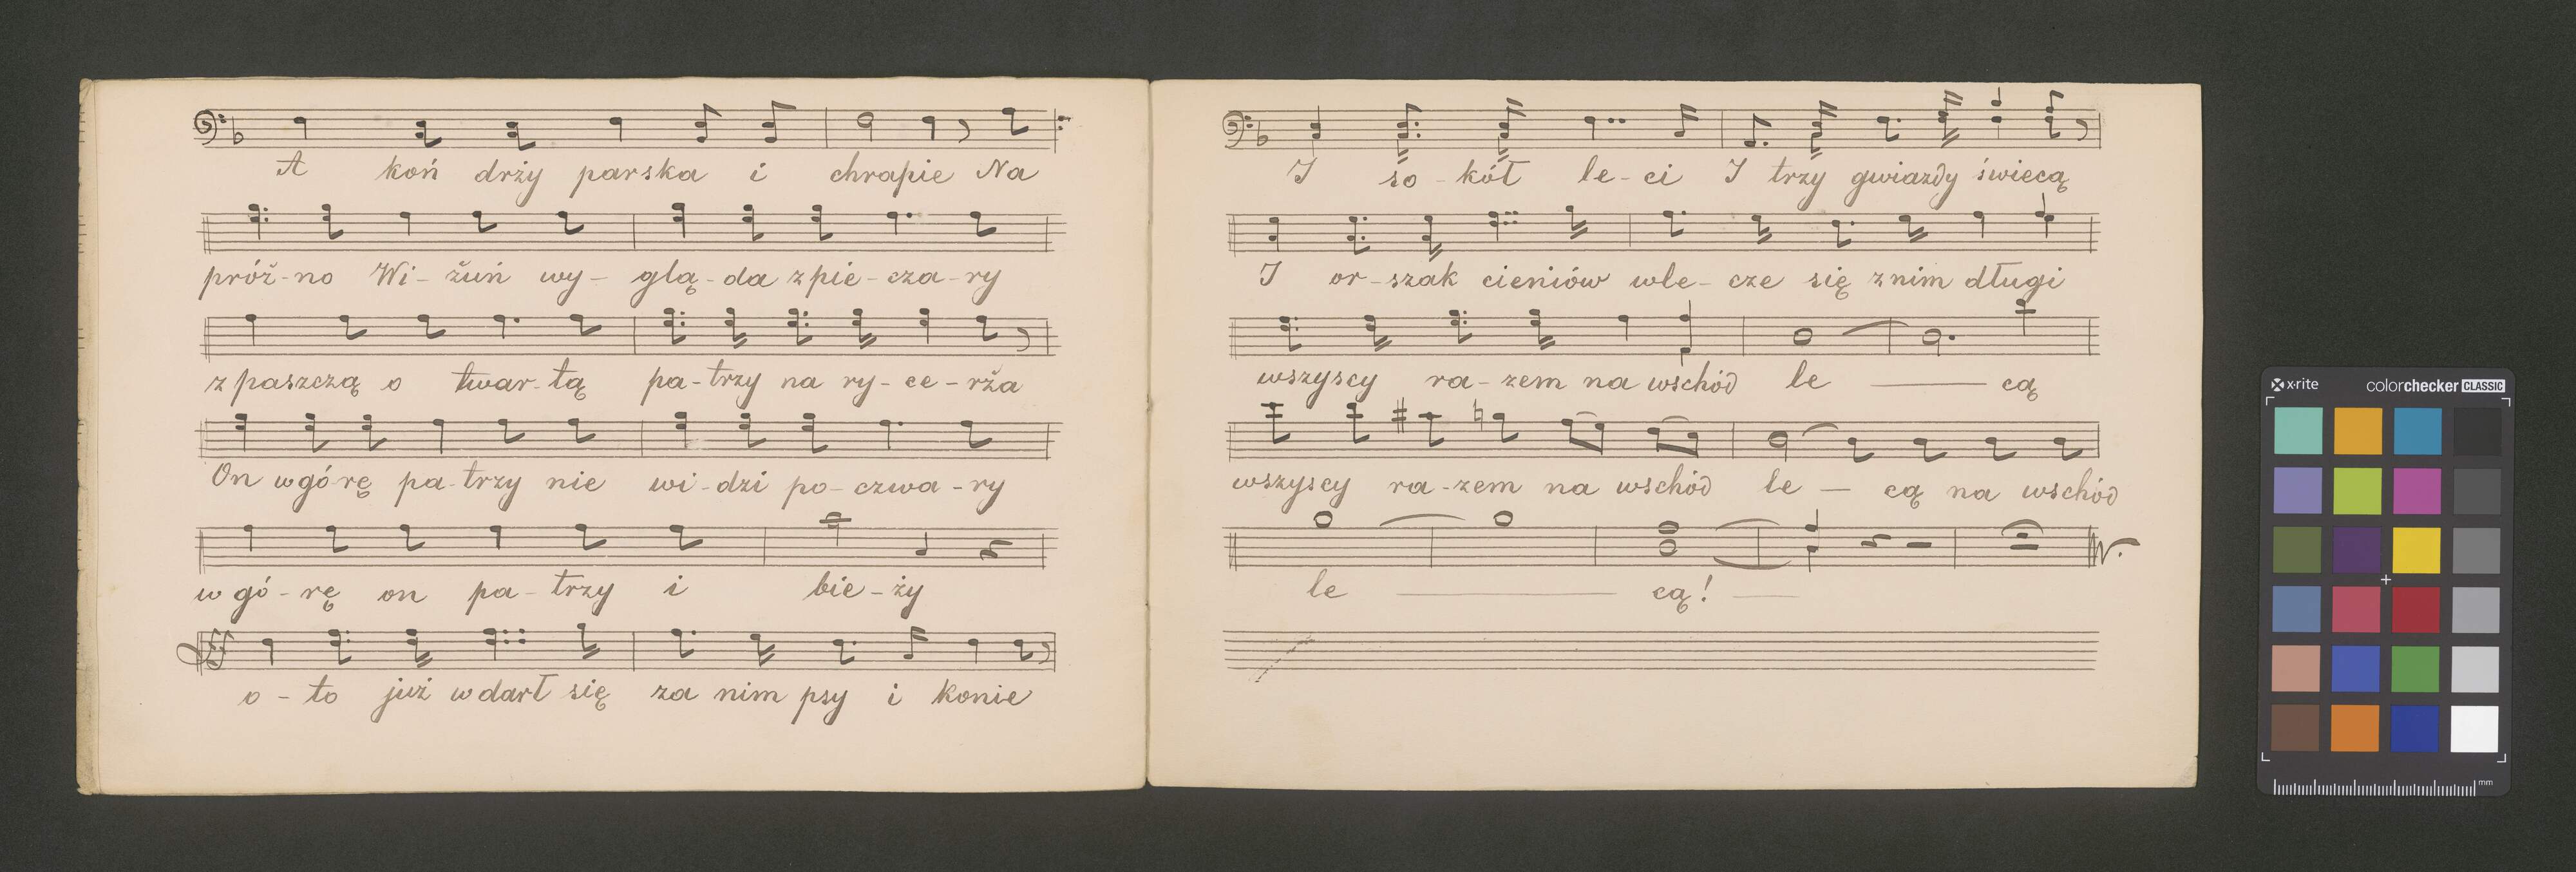 A koń drży parska i chrapie Na
próż-no Wi-żuń wy-glą-da z pie-cza-ry
z paszczą o twar-tą pa-trzy na ry-ce-rża
On w gó-rę pa-trzy nie wi-dzi po-czwa-ry
w gó-rę on pa-trzy i bie-ży
o-to już wdarł się za nim psy i konie
I so-kół le-ci I trzy gwiazdy świecą
I or-szak cieniów wle-cze się z nim długi
wszyscy ra-zem na wschód le — cą
wszyscy ra-zem na wschód le — cą na wschód
le — cą! —
x·rite colorchecker CLASSIC
mm